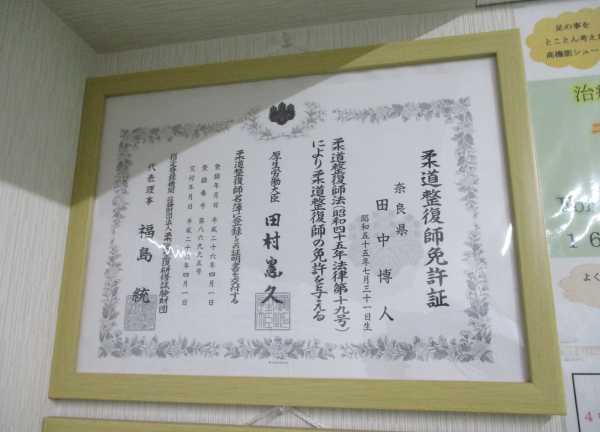 柔道整復師免許証
奈良県
田中博人
昭和五十五年七月三十一日生
柔道整復師法(昭和四十五年法律第十九号)
により柔道整復師の免許を与える
厚生労働大臣 田村憲久
柔道整復師名簿に登録しこの証明書を交付する
登録年月日 平成二十六年四月一日
登録番号 第八六九九五号
交付年月日 平成二十 年四月一日
指定登録機関 公益財団法人柔 整復研修試験財団
代表理事 福島統
足の事を
とことん考え
高機能シュー
治
1 6
よく
4